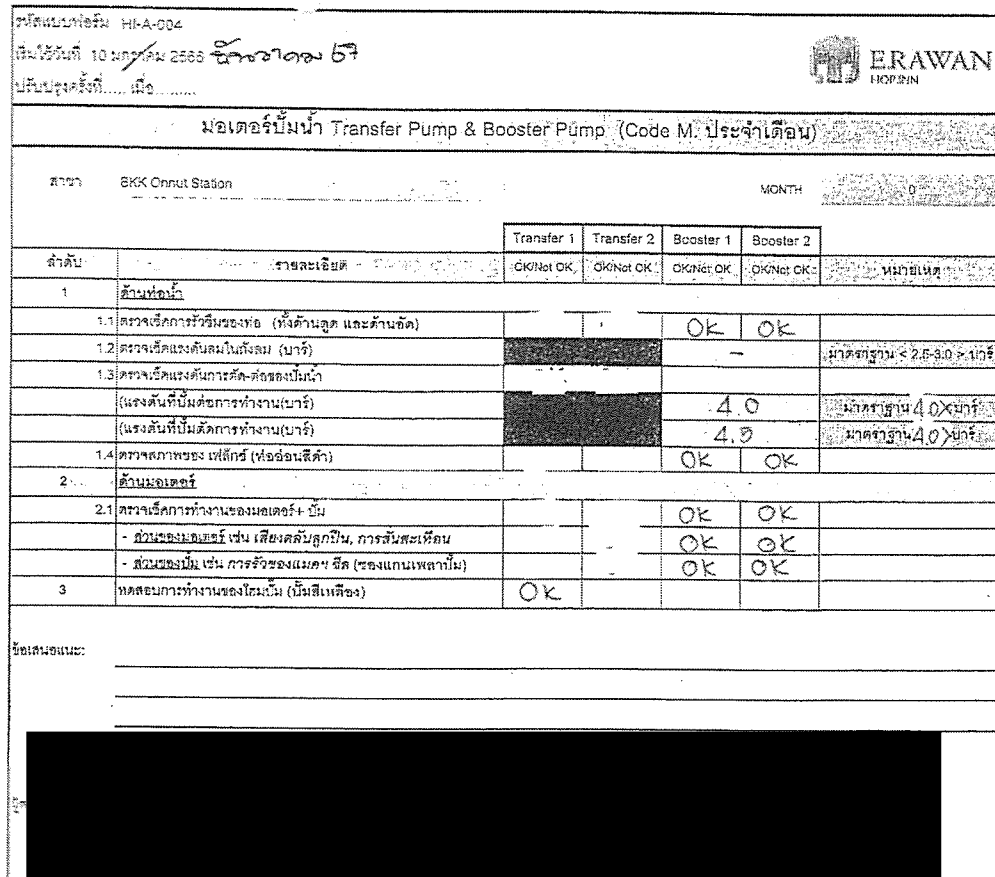 รหัสแบบฟอร์ม HI-A-004
เริ่มใช้วันที่ 10 มกราคม 2566 ธันวาคม 67
ปรับปรุงครั้งที่..... เมื่อ..........
ERAWAN
HOP INN
มอเตอร์ปั๊มน้ำ Transfer Pump & Booster Pump (Code M. ประจำเดือน)
สาขา BKK Onnut Station MONTH 0
Transfer 1 Transfer 2 Booster 1 Booster 2
ลำดับ รายละเอียด OK/Not OK OK/Not OK OK/Not OK OK/Not OK หมายเหตุ
1 ด้านท่อน้ำ
1.1 ตรวจเช็คการรั่วซึมของท่อ (ทั้งด้านดูด และด้านอัด) OK OK
1.2 ตรวจเช็คแรงดันลมในถังลม (บาร์) - มาตรฐาน < 2.5-3.0 > บาร์
1.3 ตรวจเช็คแรงดันการตัด-ต่อของปั๊มน้ำ
(แรงดันที่ปั๊มต่อการทำงาน(บาร์) 4.0 มาตรฐาน 4.0 > บาร์
(แรงดันที่ปั๊มตัดการทำงาน(บาร์) มาตรฐาน 4.0 > บาร์
1.4 ตรวจสภาพของ เฟล็กซ์ (ท่ออ่อนสีดำ) OK OK
2 ด้านมอเตอร์
2.1 ตรวจเช็คการทำงานของมอเตอร์+ ปั๊ม OK OK
- ส่วนของมอเตอร์ เช่น เสียงตลับลูกปืน, การสั่นสะเทือน OK OK
- ส่วนของปั๊ม เช่น การรั่วของแมคฯ ซีล (ของแกนเพลาปั๊ม) OK OK
3 ทดสอบการทำงานของไดปั๊ม (ปั๊มสีเหลือง) OK
ข้อเสนอแนะ: